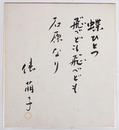 蝶ひとつ
飛べども飛べども
石原なり
萠子